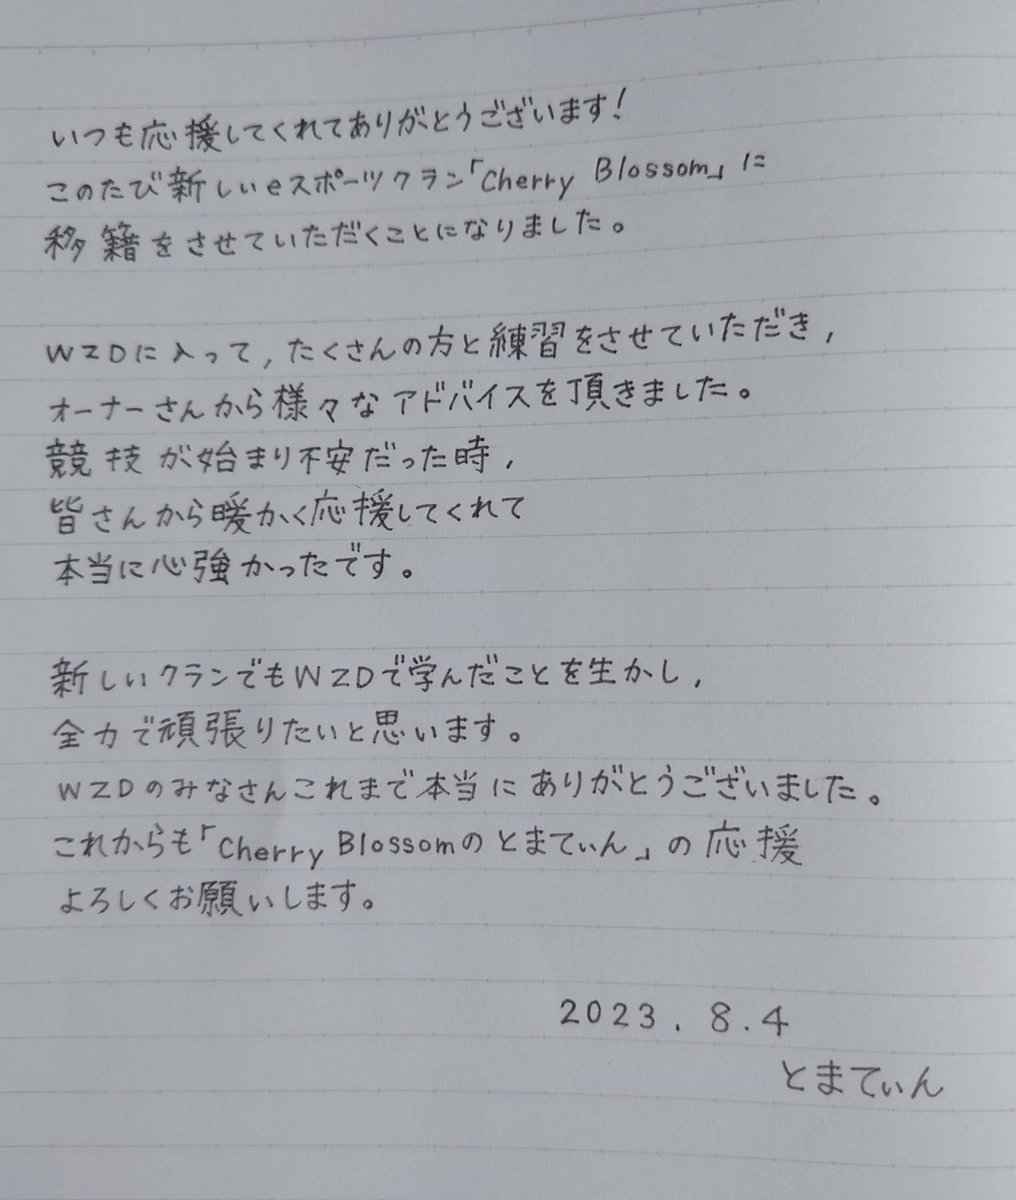 いつも応援してくれてありがとうございます!
このたび新しいeスポーツクラン「Cherry Blossom」に
移籍をさせていただくことになりました。
WZDに入って,たくさんの方と練習をさせていただき,
オーナーさんから様々なアドバイスを頂きました。
競技が始まり不安だった時,
皆さんから暖かく応援してくれて
本当に心強かったです。
新しいクランでもWZDで学んだことを生かし,
全力で頑張りたいと思います。
WZDのみなさんこれまで本当にありがとうございました。
これからも「Cherry Blossomのとまてぃん」の応援
よろしくお願いします。
2023.8.4
とまてぃん